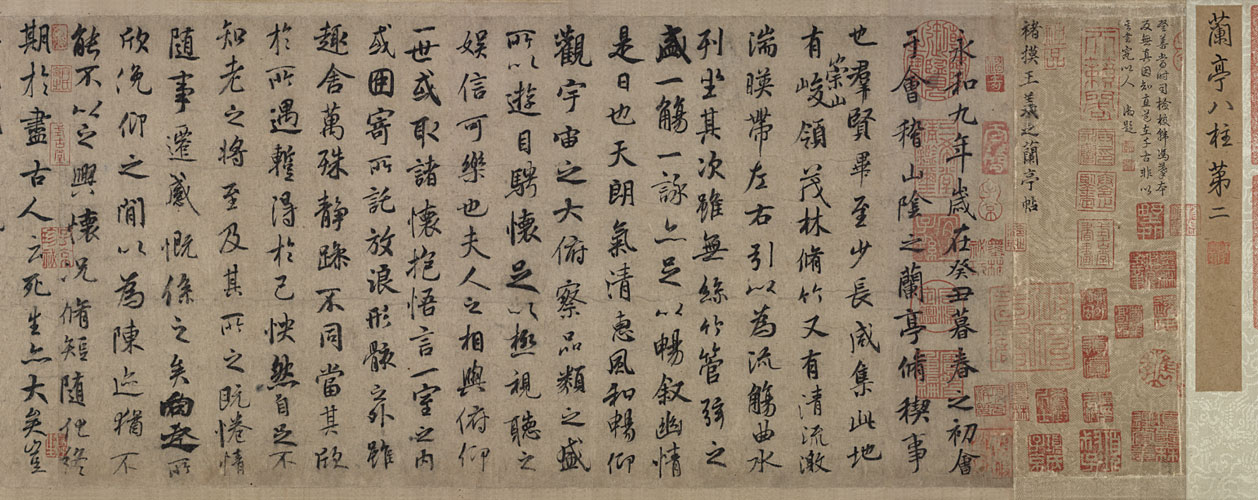 蘭亭八柱第二
褚摸王羲之蘭亭帖
永和九年歲在癸丑暮春之初會
于會稽山陰之蘭亭脩稧事
也羣賢畢至少長咸集此地
有崇山峻領茂林脩竹又有清流激
湍暎帶左右引以為流觴曲水
列坐其次雖無絲竹管弦之
盛一觴一詠亦足以暢叙幽情
是日也天朗氣清惠風和暢仰
觀宇宙之大俯察品類之盛
所以遊目騁懷足以極視聽之
娛信可樂也夫人之相與俯仰
一世或取諸懷抱悟言一室之內
或因寄所託放浪形骸之外雖
趣舍萬殊靜躁不同當其欣
於所遇蹔得於己怏然自足不
知老之將至及其所之既惓情
隨事遷感慨係之矣向之所
欣俛仰之閒以為陳迹猶不
能不以之興懷況脩短隨化終
期於盡古人云死生亦大矣豈